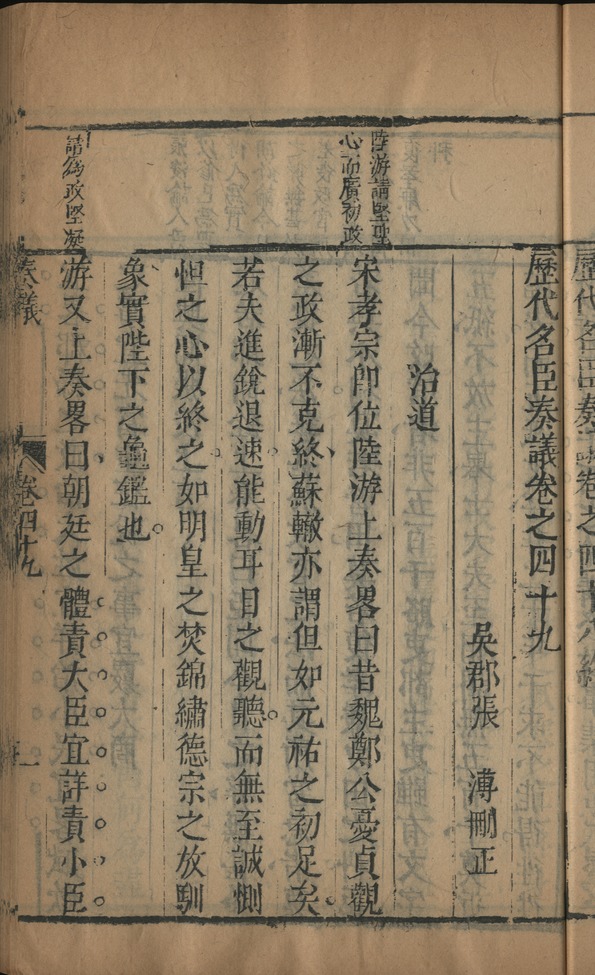 歷代名臣奏議卷之四十九
吳郡張　溥刪正
治道
陸游請堅聖
心而廣初政
宋孝宗即位陸游上奏畧曰昔魏鄭公憂貞觀
之政漸不克終蘇轍亦謂但如元祐之初足矣
若夫進銳退速能動耳目之觀聽而無至誠惻
怛之心以終之如明皇之焚錦繡德宗之放馴
象實陛下之龜鑑也
請為政堅凝
游又上奏畧曰朝廷之體責大臣宜詳責小臣
奏議
卷四十九
一